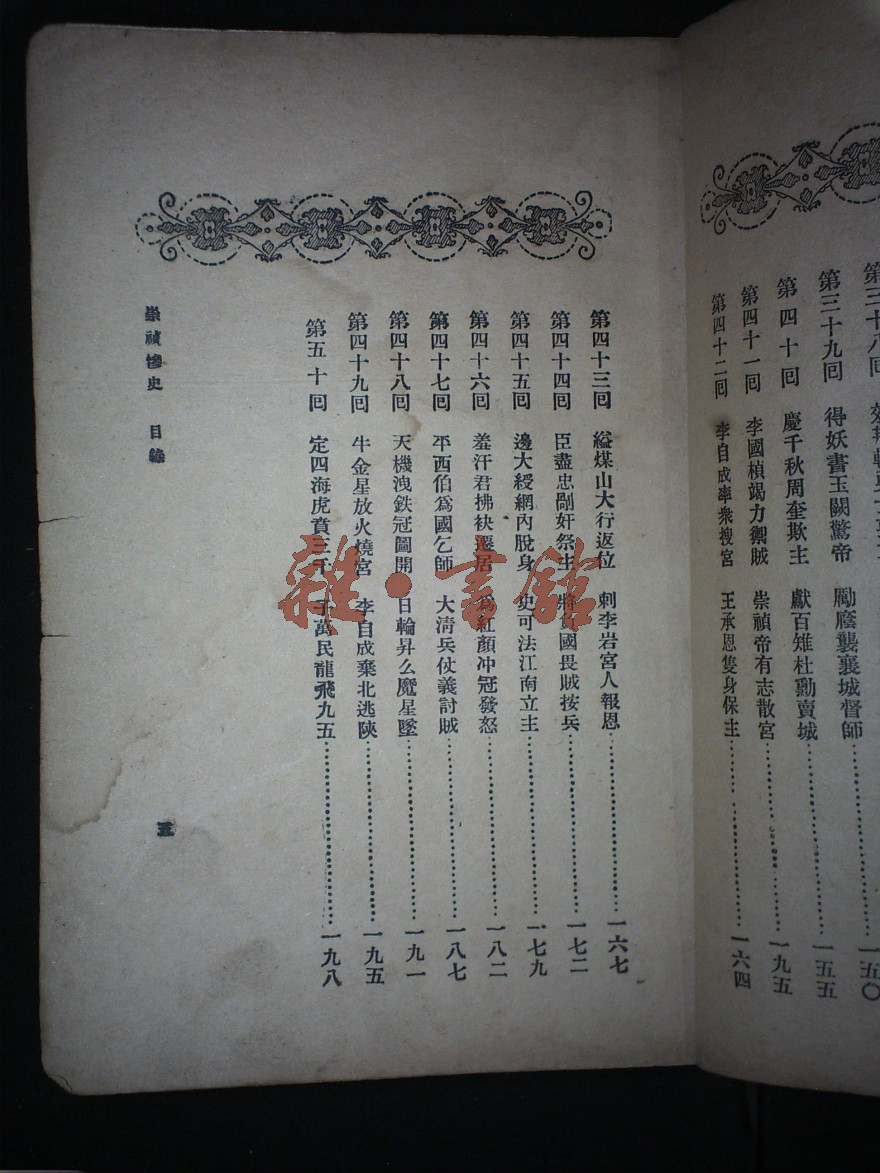 第三十九回　得妖書玉闕驚帝　勵廕襲襄城督師……一五五
第四十回　慶千秋周奎欺主　獻百雉杜勳賣城……一五五
第四十一回　李國楨竭力禦賊　崇禎帝有志散宮……一九五
第四十二回　李自成率衆搜宮　王承恩隻身保主……一六四
第四十三回　縊煤山大行返位　刺李岩宮人報恩……一六七
第四十四回　臣盡忠剮奸祭主　將負國畏賊按兵……一七二
第四十五回　邊大綬網內脫身　史可法江南立主……一七九
第四十六回　羞汗君拂袂遷居　爲紅顏冲冠發怒……一八二
第四十七回　平西伯爲國乞師　大淸兵仗義討賊……一八七
第四十八回　天機洩鉄冠圖開　日輪昇么魔星墜……一九一
第四十九回　牛金星放火燒宮　李自成棄北逃陝……一九五
第五十回　定四海虎賁三千　子萬民龍飛九五……一九八
崇禎慘史　目錄
五
雜·書館